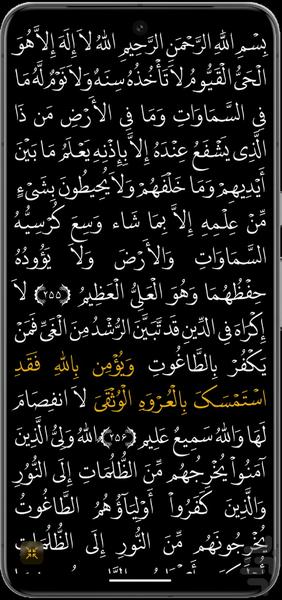 بِسْمِ اللهِ الرَّحْمَنِ الرَّحِيمِ اللهُ لاَ إِلَهَ إِلاَّ هُوَ
الْحَيُّ الْقَيُّومُ لاَ تَأْخُذُهُ سِنَةٌ وَلاَ نَوْمٌ لَّهُ مَا
فِي السَّمَاوَاتِ وَمَا فِي الأَرْضِ مَن ذَا
الَّذِي يَشْفَعُ عِنْدَهُ إِلاَّ بِإِذْنِهِ يَعْلَمُ مَا بَيْنَ
أَيْدِيهِمْ وَمَا خَلْفَهُمْ وَلاَ يُحِيطُونَ بِشَيْءٍ
مِّنْ عِلْمِهِ إِلاَّ بِمَا شَاء وَسِعَ كُرْسِيُّهُ
السَّمَاوَاتِ وَالأَرْضَ وَلاَ يَؤُودُهُ
حِفْظُهُمَا وَهُوَ الْعَلِيُّ الْعَظِيمُ ﴿۲۵۵﴾ لاَ
إِكْرَاهَ فِي الدِّينِ قَد تَّبَيَّنَ الرُّشْدُ مِنَ الْغَيِّ فَمَنْ
يَكْفُرْ بِالطَّاغُوتِ وَيُؤْمِن بِاللهِ فَقَدِ
اسْتَمْسَكَ بِالْعُرْوَةِ الْوُثْقَىَ لاَ انفِصَامَ
لَهَا وَاللهُ سَمِيعٌ عَلِيمٌ ﴿۲۵۶﴾ اللهُ وَلِيُّ الَّذِينَ
آمَنُواْ يُخْرِجُهُم مِّنَ الظُّلُمَاتِ إِلَى النُّوُرِ
وَالَّذِينَ كَفَرُواْ أَوْلِيَآؤُهُمُ الطَّاغُوتُ
يُخْرِجُونَهُم مِّنَ النُّورِ إِلَى الظُّلُمَاتِ